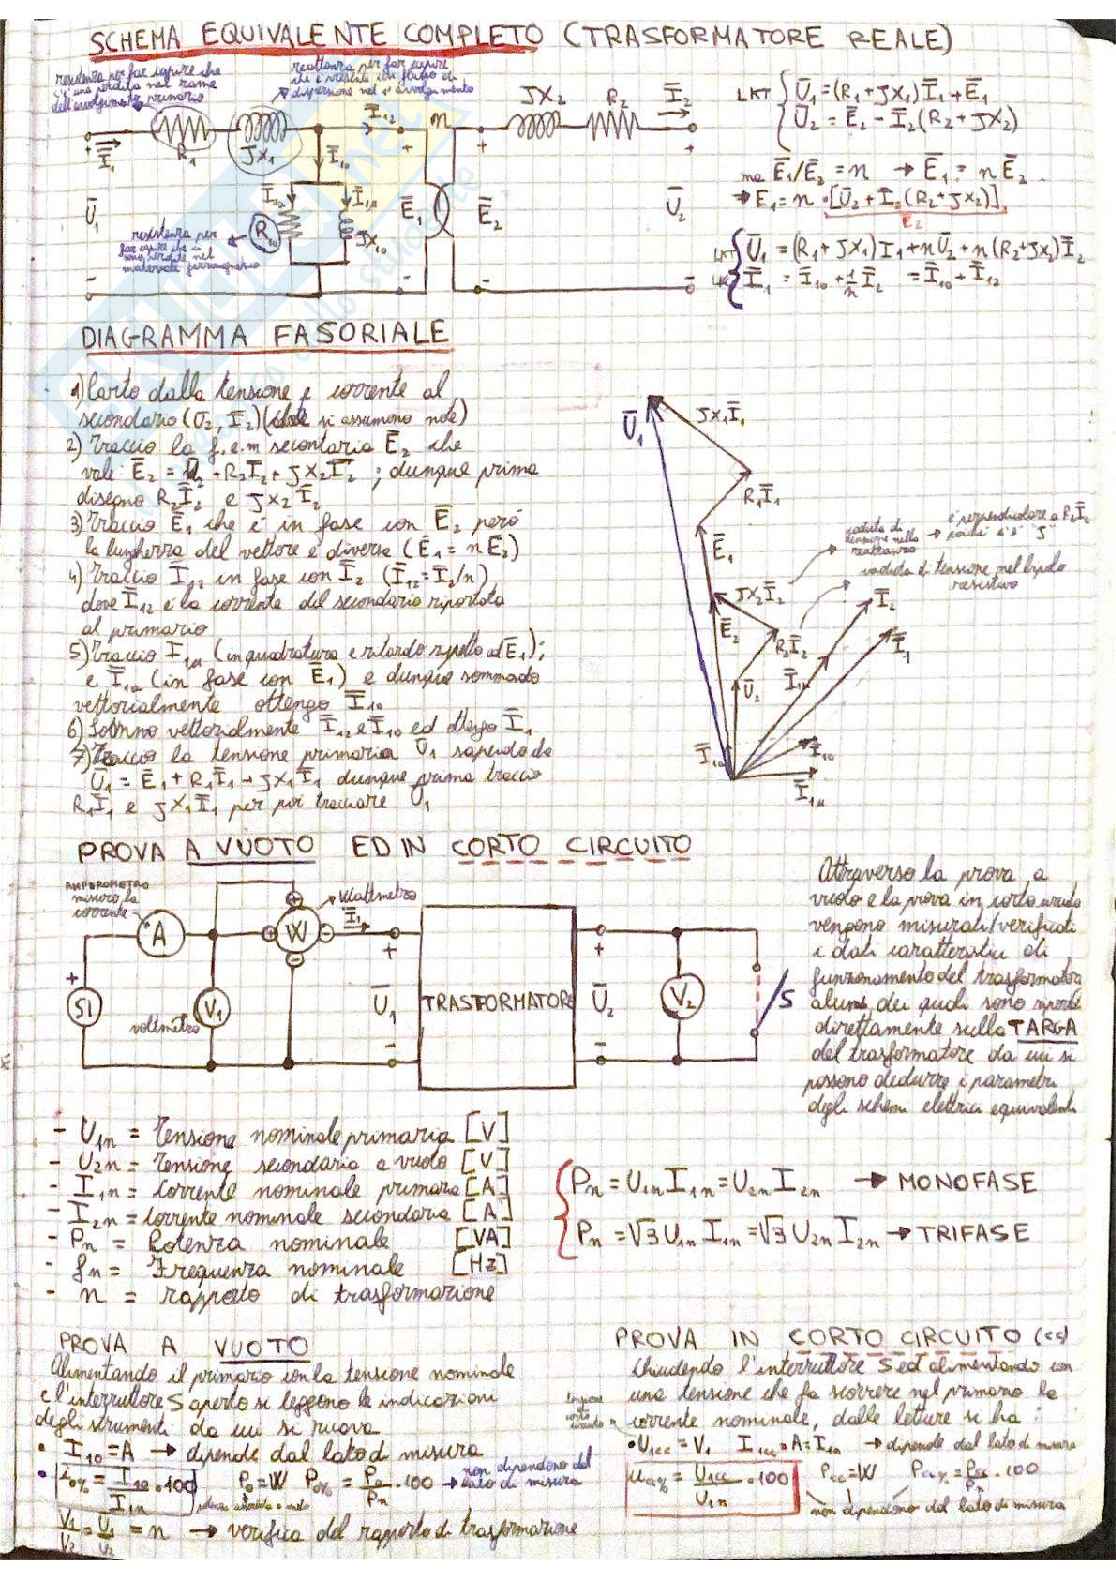 SCHEMA EQUIVALENTE COMPLETO (TRASFORMATORE REALE)
resistenza per far capire che
c'è una perdita nel rame
dell'avvolgimento primario
reattanza per far capire
che è presente un flusso di
dispersione nel 1° avvolgimento
R₁
jX₁
I̅₁
I̅₁₂
I̅₁₀
n
jX₂
R₂
I̅₂
U̅₁
E̅₁
E̅₂
U̅₂
jX₁₀
resistenza per
far capire che ci
sono perdite nel
materiale ferromagnetico
LKT { U̅₁ = (R₁ + jX₁) I̅₁ + E̅₁
U̅₂ = E̅₂ - I̅₂ (R₂ + jX₂)
ma E̅₁/E̅₂ = n → E̅₁ = n E̅₂
⇒ E₁ = n · [U̅₂ + I₂ (R₂ + jX₂)]
E₂
LKT { U̅₁ = (R₁ + jX₁) I₁ + n U̅₂ + n (R₂ + jX₂) I̅₂
LKC { I̅₁ = I̅₁₀ + 1/n I̅₂ = I̅₁₀ + I̅₁₂
DIAGRAMMA FASORIALE
1) Parto dalla tensione e corrente al
secondario (U₂, I̅₂) (che si assumono note)
2) Traccio la f.e.m secontaria E̅₂ che
vale E̅₂ = U̅₂ + R₂I̅₂ + jX₂I̅₂ ; dunque prima
disegno R₂I̅₂ e jX₂I̅₂
3) Traccio E̅₁ che è in fase con E̅₂ però
la lunghezza del vettore è diversa (E̅₁ = n E̅₂)
4) Traccio I̅₁₂ in fase con I̅₂ (I̅₁₂ = I̅₂/n)
dove I̅₁₂ è la corrente del secondario riportata
al primario
5) Traccio I₁μ (in quadratura e ritardo rispetto ad E̅₁);
e I̅₁ₐ (in fase con E̅₁) e dunque sommado
vettorialmente ottengo I̅₁₀
6) Sommo vettorialmente I̅₁₂ e I̅₁₀ ed ottengo I̅₁
7) Traccio la tensione primaria U̅₁ sapendo che
U̅₁ = E̅₁ + R₁I̅₁ + jX₁I̅₁ dunque prima traccio
R₁I̅₁ e jX₁I̅₁ per poi tracciare U̅₁
U̅₁
jX₁I̅₁
R₁I̅₁
E̅₁
jX₂I̅₂
E̅₂
R₂I̅₂
U̅₂
I̅₂
I̅₁
I̅₁₂
I̅₁ₐ
I̅₁₀
I̅₁μ
caduta di
tensione nella
reattanza
→ è perpendicolare a R₂I̅₂
poiché c'è "j"
caduta di tensione nel bipolo
resistivo
PROVA A VUOTO ED IN CORTO CIRCUITO
AMPEROMETRO
misura la
corrente
A
W
wattmetro
I̅₁
S1
voltmetro
V₁
U̅₁
TRASFORMATORE
U̅₂
V₂
S
Attraverso la prova a
vuoto e la prova in corto circuito
vengono misurati/verificati
i dati caratteristici di
funzionamento del trasformatore
alcuni dei quali sono riportati
direttamente sulla TARGA
del trasformatore da cui si
possono dedurre i parametri
degli schemi elettrici equivalenti
- U₁n = Tensione nominale primaria [V]
- U₂n = Tensione secondaria a vuoto [V]
- I₁n = Corrente nominale primaria [A]
- I₂n = Corrente nominale secondaria [A]
- Pn = Potenza nominale [VA]
- fn = Frequenza nominale [Hz]
- n = rapporto di trasformazione
Pn = U₁n I₁n = U₂n I₂n → MONOFASE
Pn = √3 U₁n I₁n = √3 U₂n I₂n → TRIFASE
PROVA A VUOTO
Alimentando il primario con la tensione nominale
e l'interruttore S aperto si leggono le indicazioni
degli strumenti da cui si ricava
• I₁₀ = A → dipende dal lato di misura
• i₀% = I₁₀/I₁n · 100 P₀ = W P₀% = P₀/Pn · 100 → non dipendono del lato di misura
potenza assorbita a vuoto
V₁/V₂ = U₁/U₂ = n → verifica del rapporto di trasformazione
PROVA IN CORTO CIRCUITO (cc)
Chiudendo l'interruttore S ed alimentando con
una tensione che fa scorrere nel primario la
corrente nominale, dalle letture si ha :
tensione di corto circuito
• U₁cc = V₁ I₁cc = A = I₁n → dipende dal lato di misura
ucc% = U₁cc/U₁n · 100 Pcc = W Pcc% = Pcc/Pn · 100
non dipendono del lato di misura